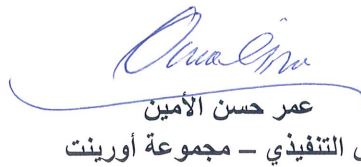 عمر حسن الأمين
التنفيذي – مجموعة أورينت